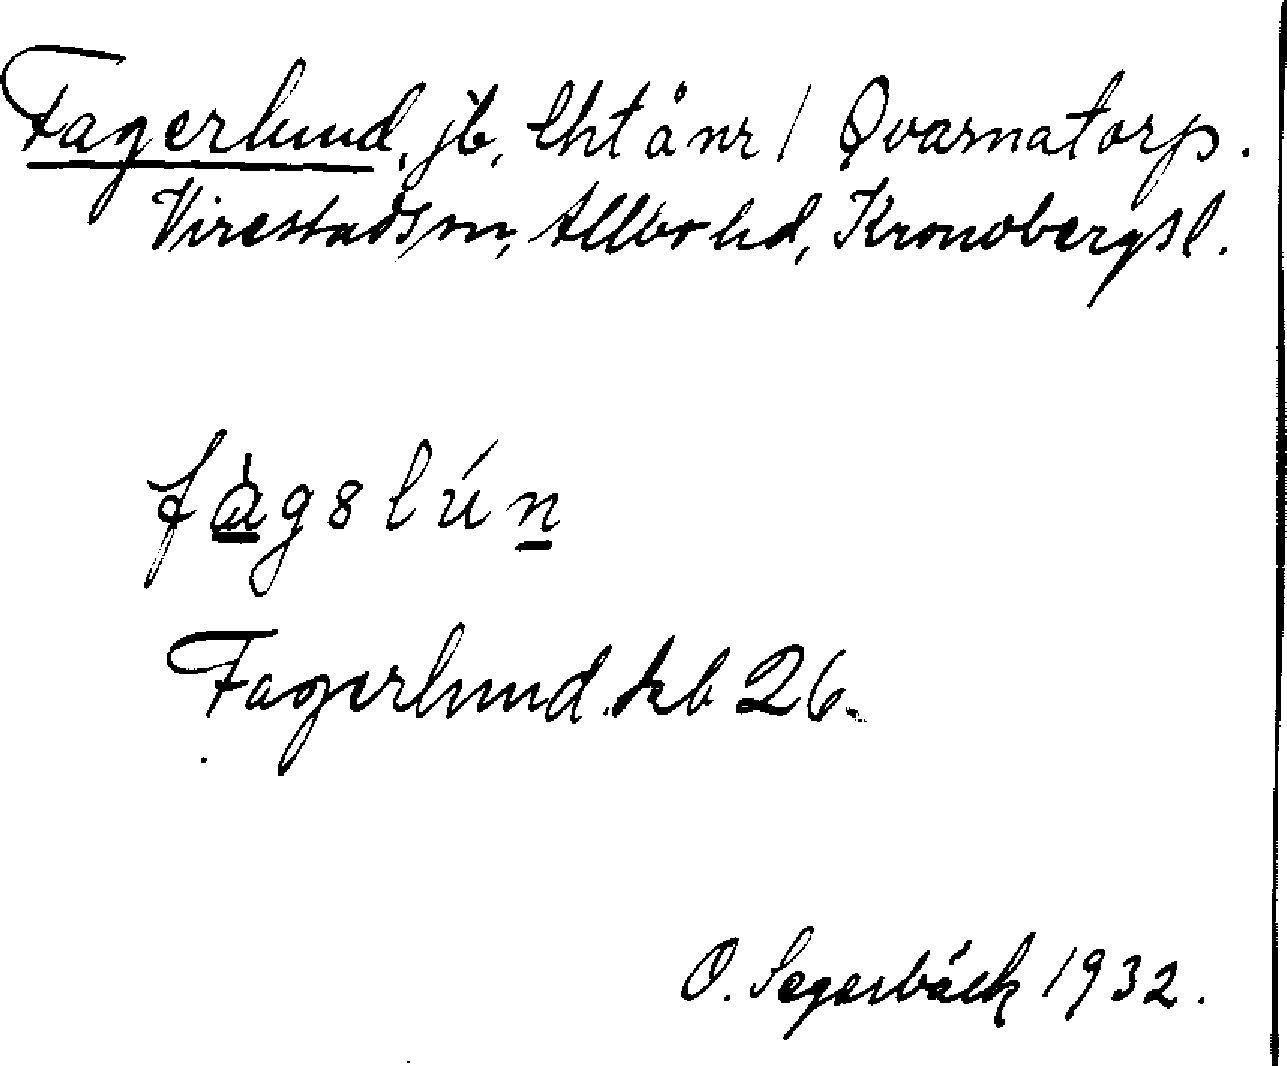 Fagerlund, jb, lht å nr 1 Qvarnatorp.
Virestads sn, Allbo hd, Kronobergs l.
fàgslún
Fagerlund. kb 26.
O. Segerbäck 1932.